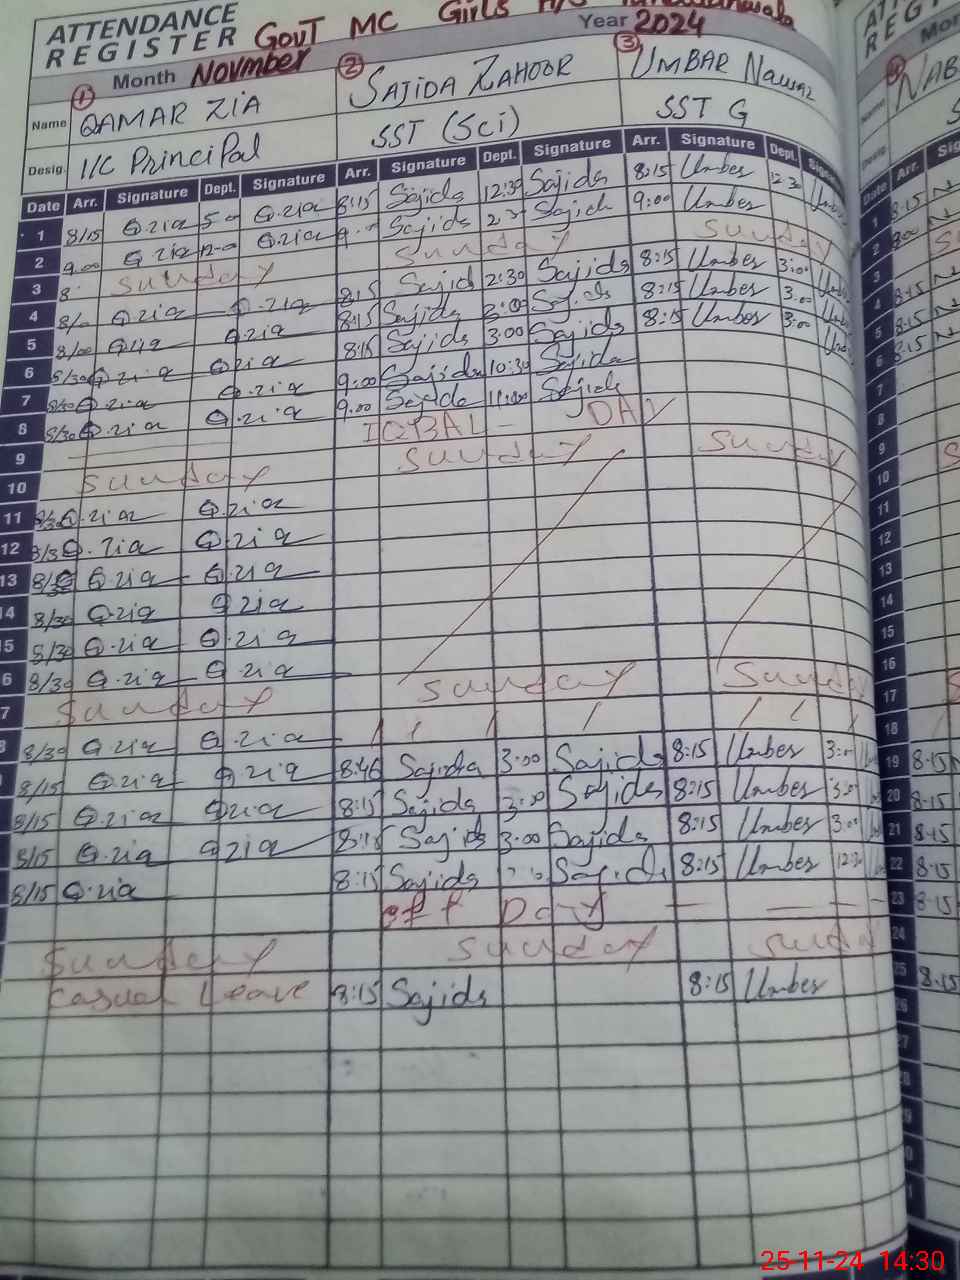 ATTENDANCE
REGISTER GovT MC Girls H/S
Month Novmber Year 2024
1 2 3
Name QAMAR ZIA SAJIDA ZAHOOR UMBAR Nawaz
Desig. I/C Principal SST (Sci) SST G
Date Arr. Signature Dept. Signature Arr. Signature Dept. Signature Arr. Signature Dept. Signature
1 8/15 Q.zia Q.zia 8:15 Sajida 12:30 Sajida 8:15 Umber 12:30
2 9:00 Q.zia Q.zia Sajida Sajida 9:00 Umber
3 Sunday Sunday Sunday
4 8/00 Q.zia Q.zia 8:15 Sajid 2:30 Sajida 8:15 Umber 3:00
5 8/00 Q.zia Q.zia 8:15 Sajida 3:00 Sajida 8:15 Umber 3:00
6 8/30 Q.zia Q.zia 8:15 Sajida 3:00 Sajida 8:15 Umber 3:00
7 Q.zia Q.zia 9:00 Sajida 10:30 Sajida
8 8/30 Q.zia Q.zia 9:00 Sajida 11:00 Sajida
9 IQBAL - DAY
10 Sunday Sunday Sunday
11 8/30 Q.zia Q.zia
12 8/30 Q.zia Q.zia
13 8/30 Q.zia Q.zia
14 8/30 Q.zia Q.zia
15 8/30 Q.zia Q.zia
16 8/30 Q.zia Q.zia
17 Sunday Sunday Sunday
18 8/30 Q.zia Q.zia
19 8/15 Q.zia Q.zia 8:46 Sajida 3:00 Sajida 8:15 Umber 3:00
20 8/15 Q.zia Q.zia 8:15 Sajida 3:00 Sajida 8:15 Umber 3:00
21 8/15 Q.zia Q.zia 8:15 Sajida 3:00 Sajida 8:15 Umber 3:00
22 8/15 Q.zia 8:15 Sajida Sajida 8:15 Umber 12:30
23 off Day
24 Sunday Sunday Sunday
25 Casual Leave 8:15 Sajida 8:15 Umber
25-11-24 14:30